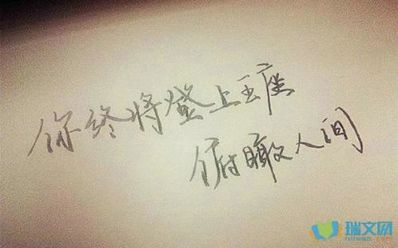 你终将登上王座
俯瞰人间
瑞文网